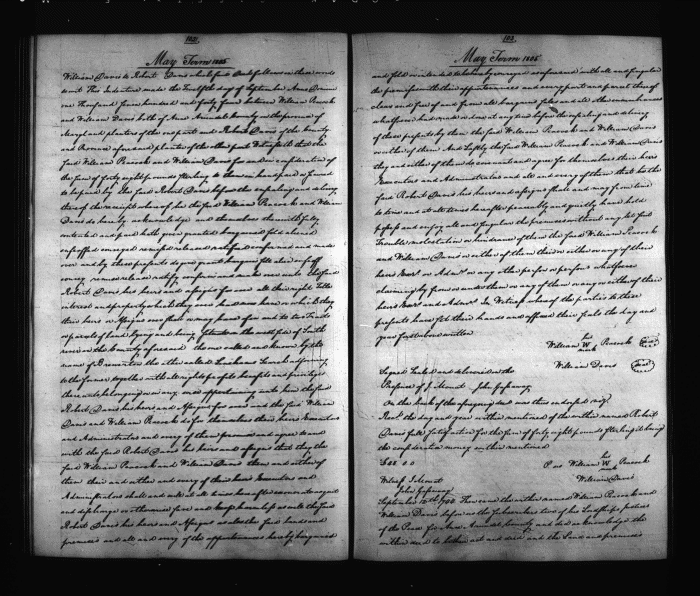 102
May Term 1805
William Davis to Robert Davis which follows in these words
to wit This Indenture made the Twelfth day of September Anno Domini
one Thousand seven hundred and forty four between William Peacock
and William Davis both of Anne Arundele County in the province of
Maryld planters of the one part and Robert Davis of the County
and Province aforesaid planter of the other part Witnesseth that the
said William Peacock and William Davis for and in consideration of
the sum of forty eight pounds Sterling to them in hand paid or secured
to be paid by the said Robert Davis before the ensealing and delivery
thereof the receipt whereof the said William Peacock and William
Davis do hereby acknowledge and themselves therewith fully
contented and paid hath given granted bargained sold aliened
enfeoffed conveyed remised released ratified confirmed and made
over and by these presents do give grant bargain sell alien enfeoff
convey remise release ratify confirm and make over unto the said
Robert Davis his heirs and assigns for ever all their right Title
interest and property which they ever had now have or which they
their heirs or Assigns ever shall or may have for and to two Tracts
or parcels of land lying and being Situate on the west side of South
river in the County aforesaid the one called and known by the
name of Brewerton the other called Larkins
to the former together with all rights profits benefits and privileges
there unto belonging or in any wise appertaining unto him the said
Robert Davis his heirs and Assigns for ever and the said William
Davis and William Peacock do for themselves their heirs Executors
and Administrators and every of them promise and agree to and
with the said Robert Davis his heirs and assigns that they the
said William Peacock and William Davis them and either of
them their and either and every of their heirs Executors and
Administrators shall and will at all times hereafter exonerate acquit
and discharge or otherwise save and keep harmless as well the said
Robert Davis his heirs and Assigns as also the said lands and
premises and all and every of the appurtenances hereby bargained
103
May Term 1805
and sold or intended to be hereby conveyed confirmed with all and singular
the premises with their appurtenances and every part and parcel thereof
clear and free of and from all bargains sales and all other incumbrances
whatsoever had made or done at any time before the ensealing and delivery
of these presents by them the said William Peacock and William Davis
or either of them And lastly the said William Peacock and William Davis
they and either of them do covenant and agree for themselves their heirs
Executors and Administrators and all and every of them that he the
said Robert Davis his heirs and assigns shall and may from time
to time and at all times hereafter peaceably and quietly have hold
possess and enjoy all and singular the premises without any let suit
Trouble molestation or hindrance of them the said William Peacock
and William Davis or either of them their or either or any of their
heirs Execrs or Admrs or any other person or persons whatsoever
claiming by from or under them or any of them or any or either of their
heirs Execrs and Admrs In Witness whereof the parties to these
presents have set their hands and affixed their seals the day and
year first above written
his
William W Peacock
mark
William Davis
Signed Sealed and delivered in the
Presence of J Mouat John Gassaway
On the back of the aforegoing deed was thus endorsed viz
Recd the day and year within mentioned of the within named Robert
Davis full satisfaction for the sum of forty eight pounds Sterling it being
the consideration money within mentioned
£48 0 0
his
P us William W Peacock
William Davis
Witness J Mouat
John Gassaway
September 12th 1744 Then came the within named William Peacock and
William Davis before us the Subscribers two of his Lordships Justices
of the Peace for Anne Arundel County and did acknowledge the
within deed to be their act and deed and the Land and premises